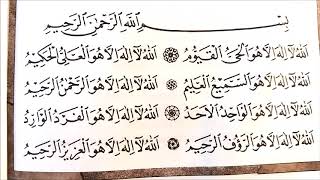 بِسْمِ اللهِ الرَّحْمٰنِ الرَّحِيْمِ
اَللهُ لَا اِلٰهَ اِلَّا هُوَ الْحَىُّ الْقَيُّوْمُ ۞ اَللهُ لَا اِلٰهَ اِلَّا هُوَ الْعَلِىُّ الْحَكِيْمُ
اَللهُ لَا اِلٰهَ اِلَّا هُوَ السَّمِيْعُ الْعَلِيْمُ ۞ اَللهُ لَا اِلٰهَ اِلَّا هُوَ الرَّحْمٰنُ الرَّحِيْمُ
اَللهُ لَا اِلٰهَ اِلَّا هُوَ الْوَاحِدُ الْاَحَدُ ۞ اَللهُ لَا اِلٰهَ اِلَّا هُوَ الْفَرْدُ
اَللهُ لَا اِلٰهَ اِلَّا هُوَ الرَّؤُفُ الرَّحِيْمُ ۞ اَللهُ لَا اِلٰهَ اِلَّا هُوَ الْعَزِيْزُ الرَّحِيْمُ